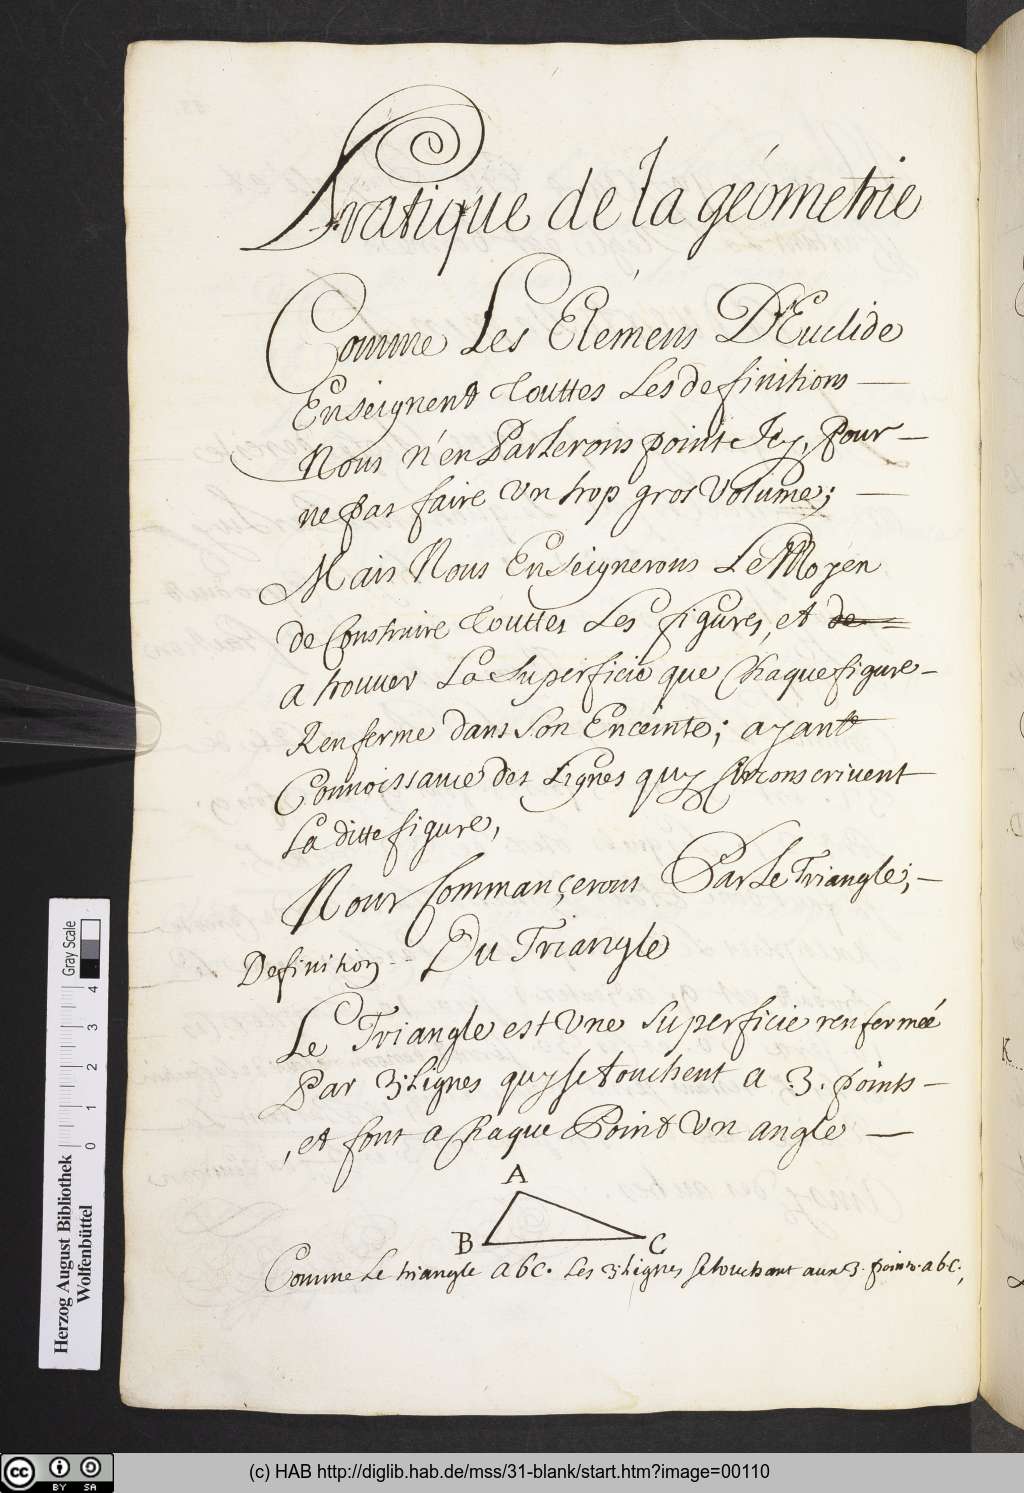 Pratique de la géometrie
Comme Les Elémens D'Euclide
Enseignent Touttes Les definitions —
Nous n'en Parlerons point Icy, Pour —
ne pas faire Un trop gros Volume; —
Mais Nous Enseignerons Le Moyen
de Construire Touttes Les figures, et de
a trouver La Superficie que Chaque figure —
Renferme dans Son Enceinte; ayant
Connoissance des Lignes quy Circonscrivent
La ditte figure,
Nous Commançerons Par Le Triangle; —
Definition -- Du Triangle
Le Triangle est Une Superficie renfermeé
Par 3 Lignes quy se touchent a .3. points —
, et font a Chaque Point Un angle —
A
B
C
Comme Le triangle abc. Les 3 Lignes Se touchant aux 3. points. abc.,
Gray Scale
0 1 2 3 4
Herzog August Bibliothek
Wolfenbüttel
K
cc BY SA
(c) HAB http://diglib.hab.de/mss/31-blank/start.htm?image=00110